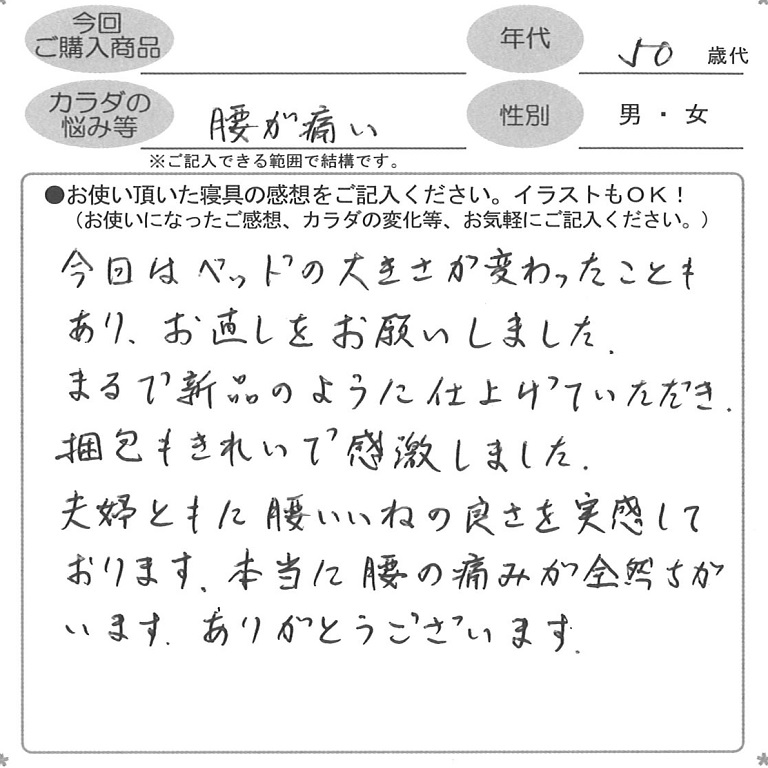 今回
ご購入商品
年代
50 歳代
カラダの
悩み等
腰が痛い
性別
男・女
※ご記入できる範囲で結構です。
●お使い頂いた寝具の感想をご記入ください。イラストもOK！
（お使いになったご感想、カラダの変化等、お気軽にご記入ください。）
今回はベッドの大きさが変わったことも
あり、お直しをお願いしました.
まるで新品のように仕上げていただき.
梱包もきれいで感激しました.
夫婦ともに腰いいねの良さを実感して
おります. 本当に腰の痛みが全然ちが
います. ありがとうございます.